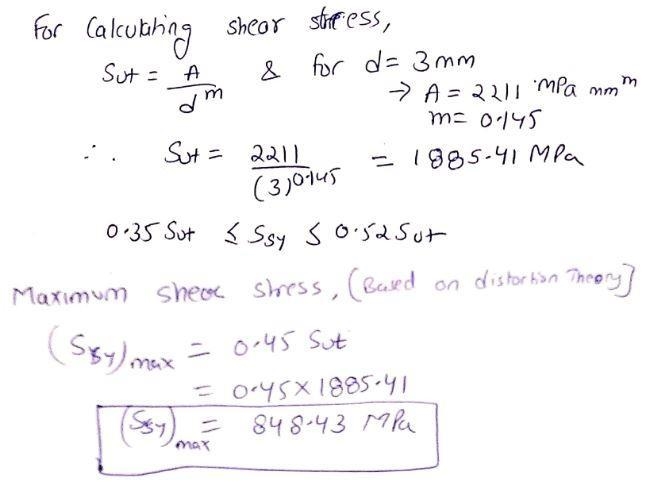 For Calculating shear stress,
Sut = A / d^m & for d = 3mm
→ A = 2211 MPa mm^m
m = 0.145
∴ Sut = 2211 / (3)^0.145 = 1885.41 MPa
0.35 Sut ≤ Ssy ≤ 0.52 Sut
Maximum shear stress, (Based on distortion Theory]
(Ssy)max = 0.45 Sut
= 0.45 × 1885.41
(Ssy)max = 848.43 MPa